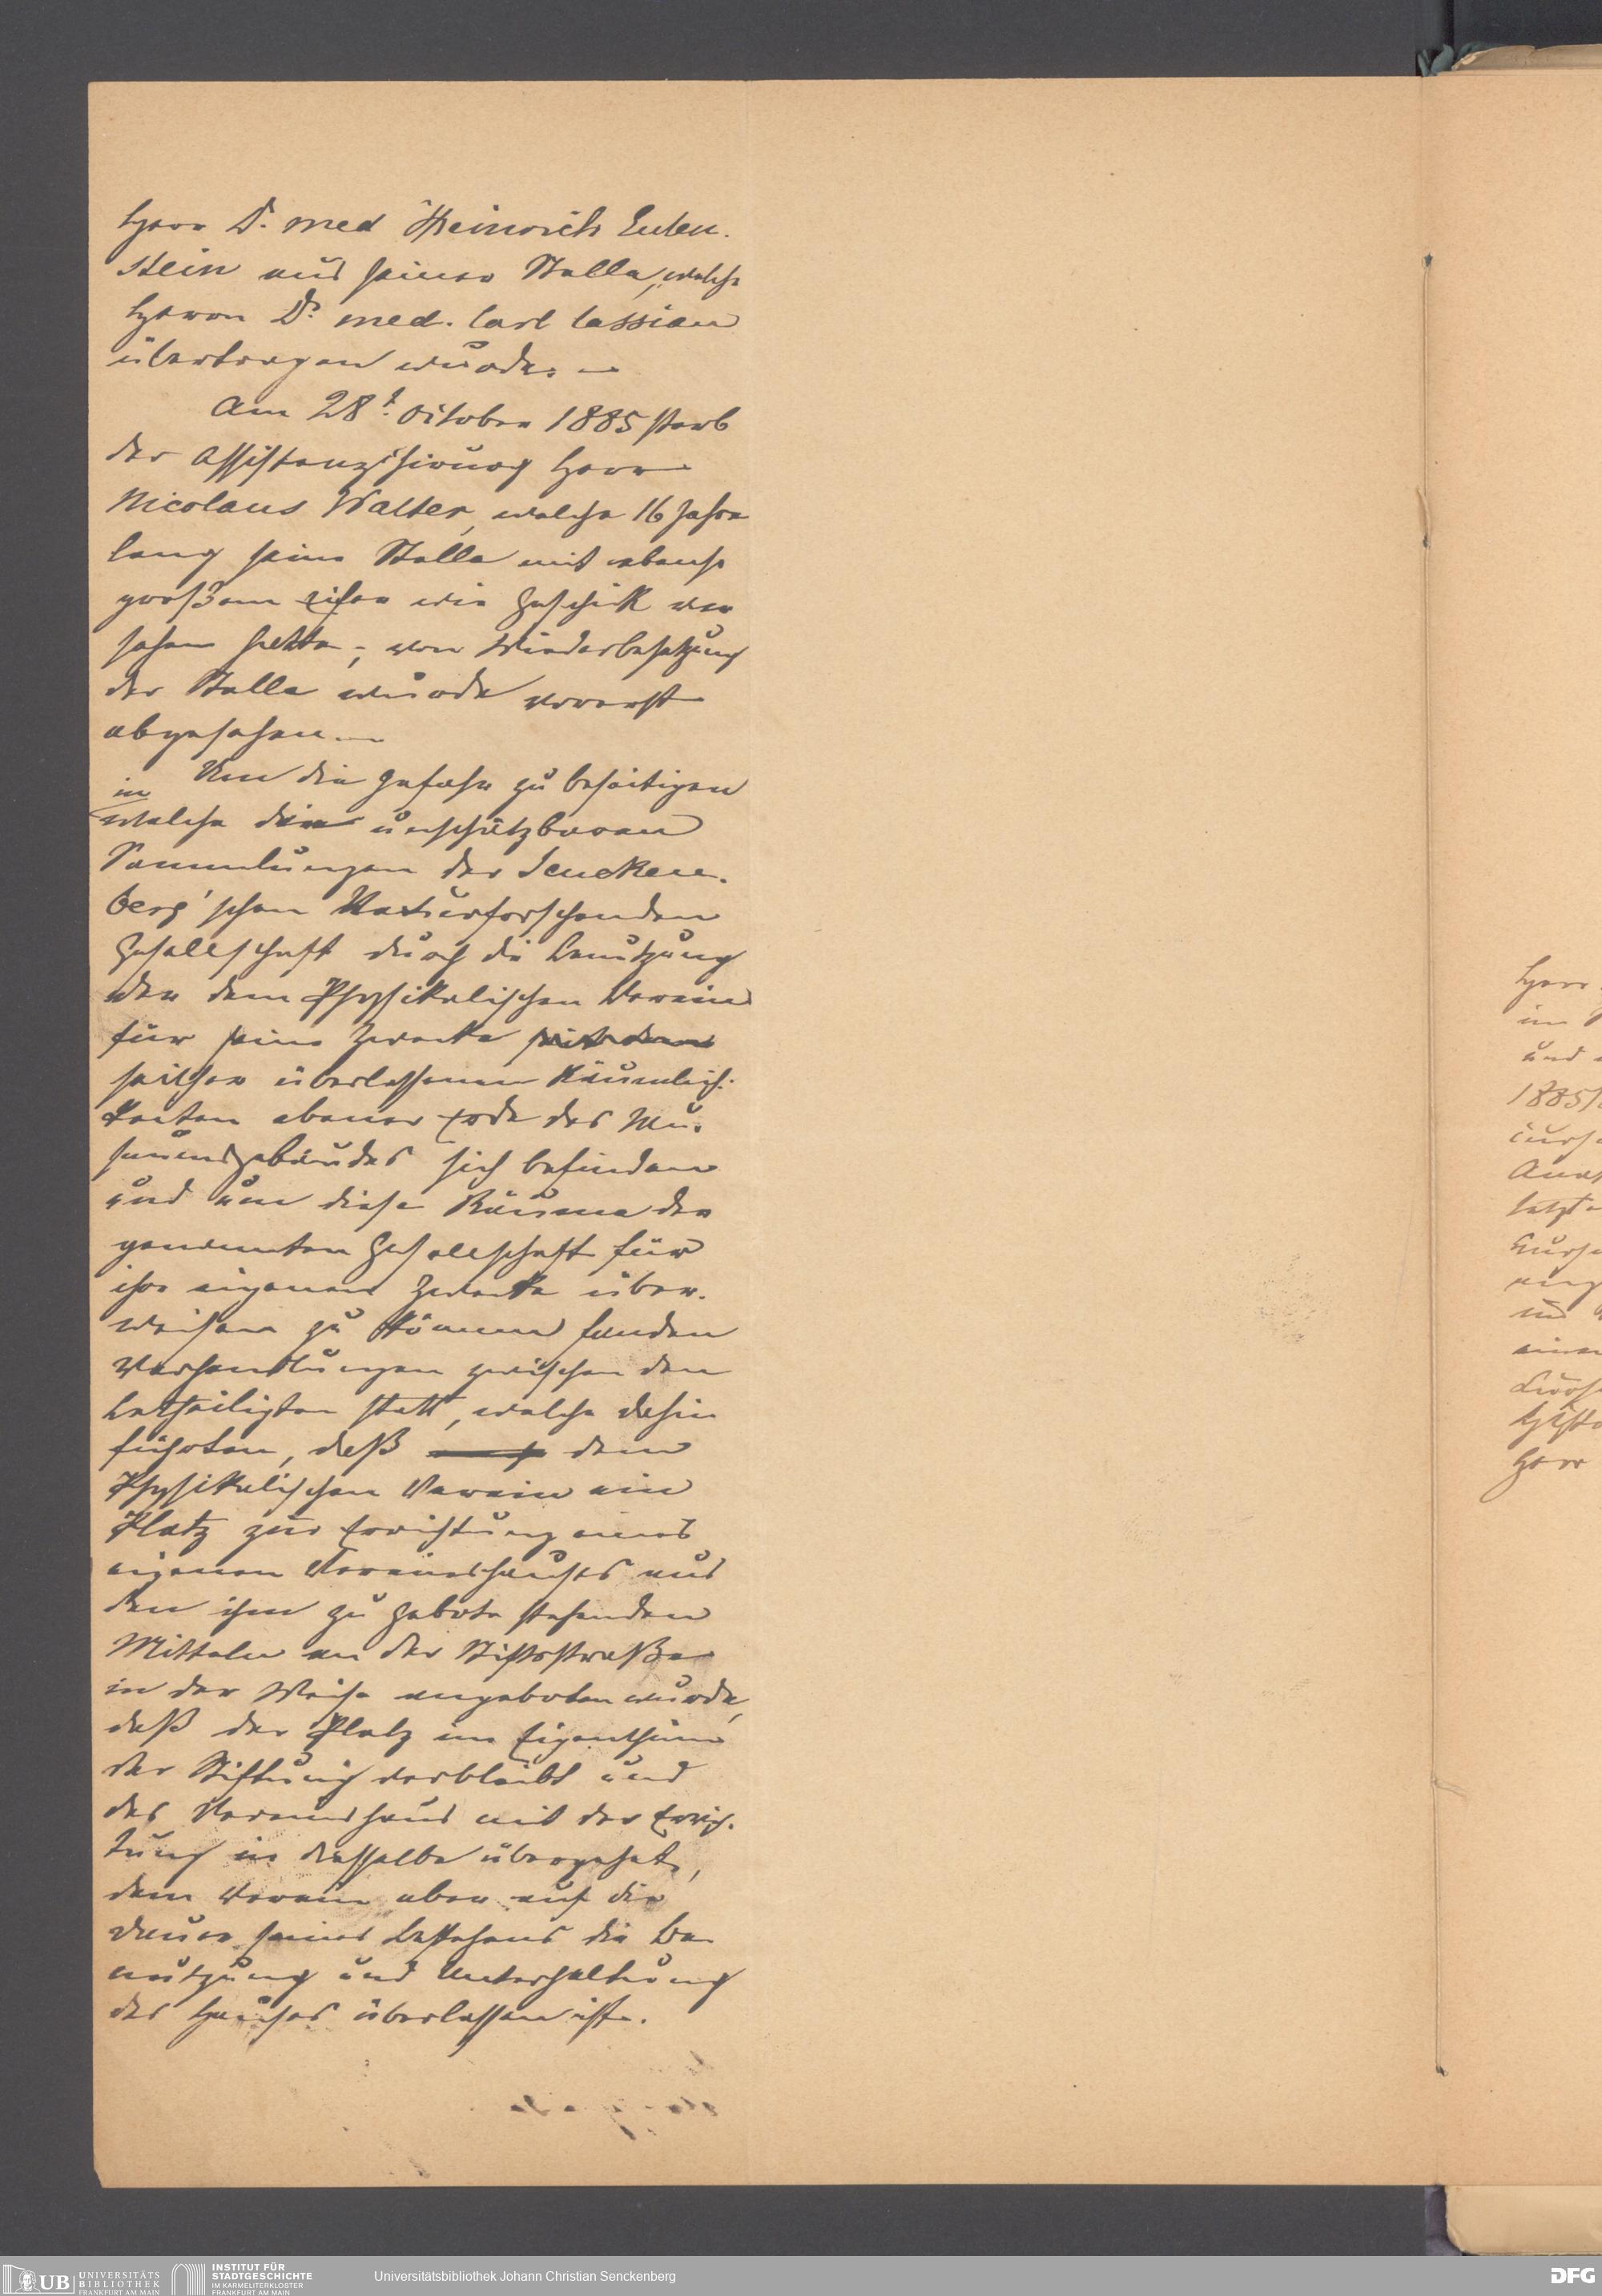 Herr Dr. med Heinrich Euten-
stein aus seiner Stelle, welche
Herrn Dr. med. Carl Cassian
übertragen wurde. –
Am 28t. October 1885 starb
der Assistenzchirurg Herr
Nicolaus Walter, welche 16 Jahre
lang seine Stelle mit ebenso
großem Eifer wie Geschick ver
sehen hatte; von Wiederbesetzung
der Stelle wurde vorerst
abgesehen. –
Um die Gefahr zu beseitigen
in
welche die unschätzbaren
Sammlungen der Sencken-
berg'schen Naturforschenden
Gesellschaft durch die Benutzung
der dem Physikalischen Verein
für seine Zwecke
seither überlassenen Räumlich-
keiten ebener Erde des Mu-
seumsgebäudes sich befinden
und um diese Räume der
genannten Gesellschaft für
ihre eigenen Zwecke über-
weisen zu können fanden
Verhandlungen zwischen den
Betheiligten statt, welche dahin
führten, daß dem
Physikalischen Verein ein
Platz zur Errichtung eines
eigenen Vereinshauses aus
den ihm zu Gebote stehenden
Mitteln an der Stiftstraße
in der Weise angeboten wurde,
daß der Platz im Eigenthum
der Stiftung verbleibt und
das Vereinshaus mit der Errich-
tung in dasselbe übergehet,
dem Verein aber auf die
Dauer seines Bestehens die Be
nutzung und Unterhaltung
des Hauses überlassen ist.
Herr
im
und
1885/
letzte
Herr
UB UNIVERSITÄTS
BIBLIOTHEK
FRANKFURT AM MAIN
INSTITUT FÜR
STADTGESCHICHTE
IM KARMELITERKLOSTER
FRANKFURT AM MAIN
Universitätsbibliothek Johann Christian Senckenberg
DFG